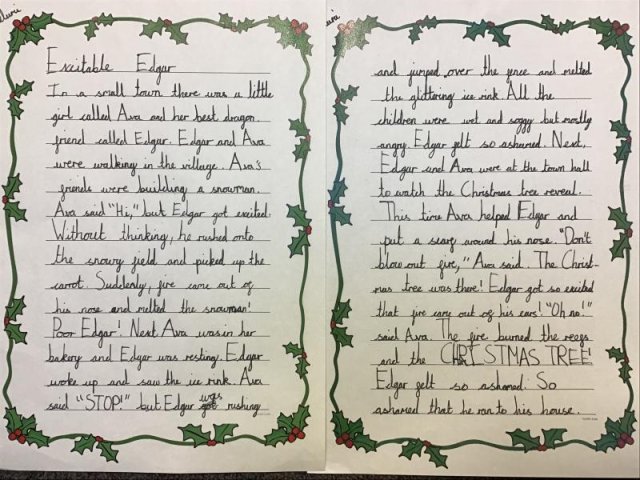 Excitable Edgar
In a small town there was a little
girl called Ava and her best dragon
friend called Edgar. Edgar and Ava
were walking in the village. Ava's
friends were building a snowman.
Ava said "Hi," but Edgar got excited.
Without thinking, he rushed onto
the snowy field and picked up the
carrot. Suddenly, fire came out of
his nose and melted the snowman!
Poor Edgar! Next Ava was in her
bakery and Edgar was resting. Edgar
woke up and saw the ice rink. Ava
said "STOP!" but Edgar was rushing
and jumped over the fence and melted
the glittering ice rink. All the
children were wet and soggy but mostly
angry. Edgar felt so ashamed. Next,
Edgar and Ava were at the town hall
to watch the Christmas tree reveal.
This time Ava helped Edgar and
put a scarf around his nose. "Don't
blow out fire," Ava said. The Christ-
mas tree was there! Edgar got so excited
that fire came out of his ears! "Oh no!"
said Ava. The fire burned the reegs
and the CHRISTMAS TREE!
Edgar felt so ashamed. So
ashamed that he ran to his house.